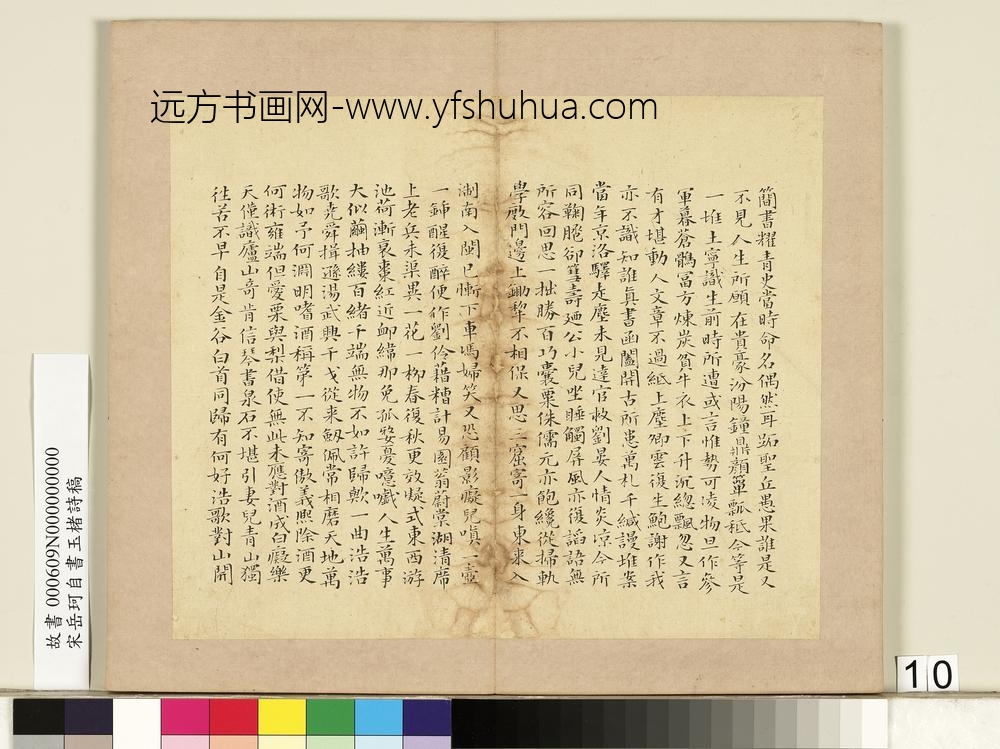 远方书画网-www.yfshuhua.com
簡書耀青史當時命名偶然耳跖聖丘愚果誰是又
不見人生所願在貴豪汾陽鐘鼎顏簞瓢秪今等是
一堆土寧識生前時所遭或言惟勢可凌物旦作參
軍暮蒼鶻冨方煉炭貧牛衣上下升沉緫飄忽又言
有才堪動人文章不過紙上塵卿雲復生鮑謝作我
亦不識知誰真書函闔開古所患萬札千緘謾堆案
當年京洛驛走塵未見達官救劉晏人情炎凉今所
同鞠脆卻篲壽廼公小兒坐睡觸屏風亦復謟語無
所容回思一拙勝百巧囊粟侏儒元亦飽纔從掃軌
學啟門邊上鋤犂不相保又思三窟寄一身東来入
淛南入閩已慚下車馮婦笑又恐顧影癡兒嗔一壺
一鍤醒復醉便作劉伶藉糟計易園翁蔚棠湖清席
上老兵未渠異一花一柳春復秋更放凝式東西游
池荷漸裒棗紅近卹緯那免孤嫠憂噫嚱人生萬事
大似繭抽縷百緒千端無物不如許歸歟一曲浩浩
歌堯舜揖遜湯武興干戈從来劔佩常相磨天地萬
物如予何淵明嗜酒稱第一不知寄傲義熈除酒更
何術雍端但愛栗與梨借使無此未應對酒成白癡樂
天僅識廬山竒肯信琴書泉石不堪引妻兒青山獨
徃苦不早自是金谷白首同歸有何好浩歌對山開
故書 000609N000000000
宋岳珂自書玉楮詩稿
10